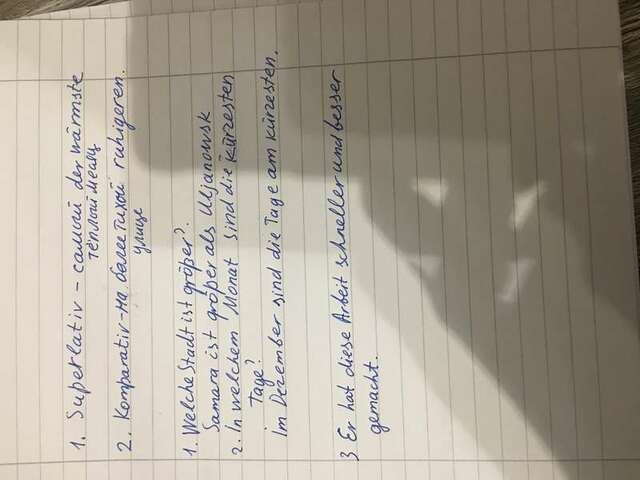 1. Superlativ – самый der wärmste
тёплый месяц
2. Komparativ – на более тихой ruhigeren.
улице
1. Welche Stadt ist größer?
Samara ist größer als Uljanowsk
2. In welchem Monat sind die kürzesten
Tage?
Im Dezember sind die Tage am kürzesten.
3 Er hat diese Arbeit schneller und besser
gemacht.